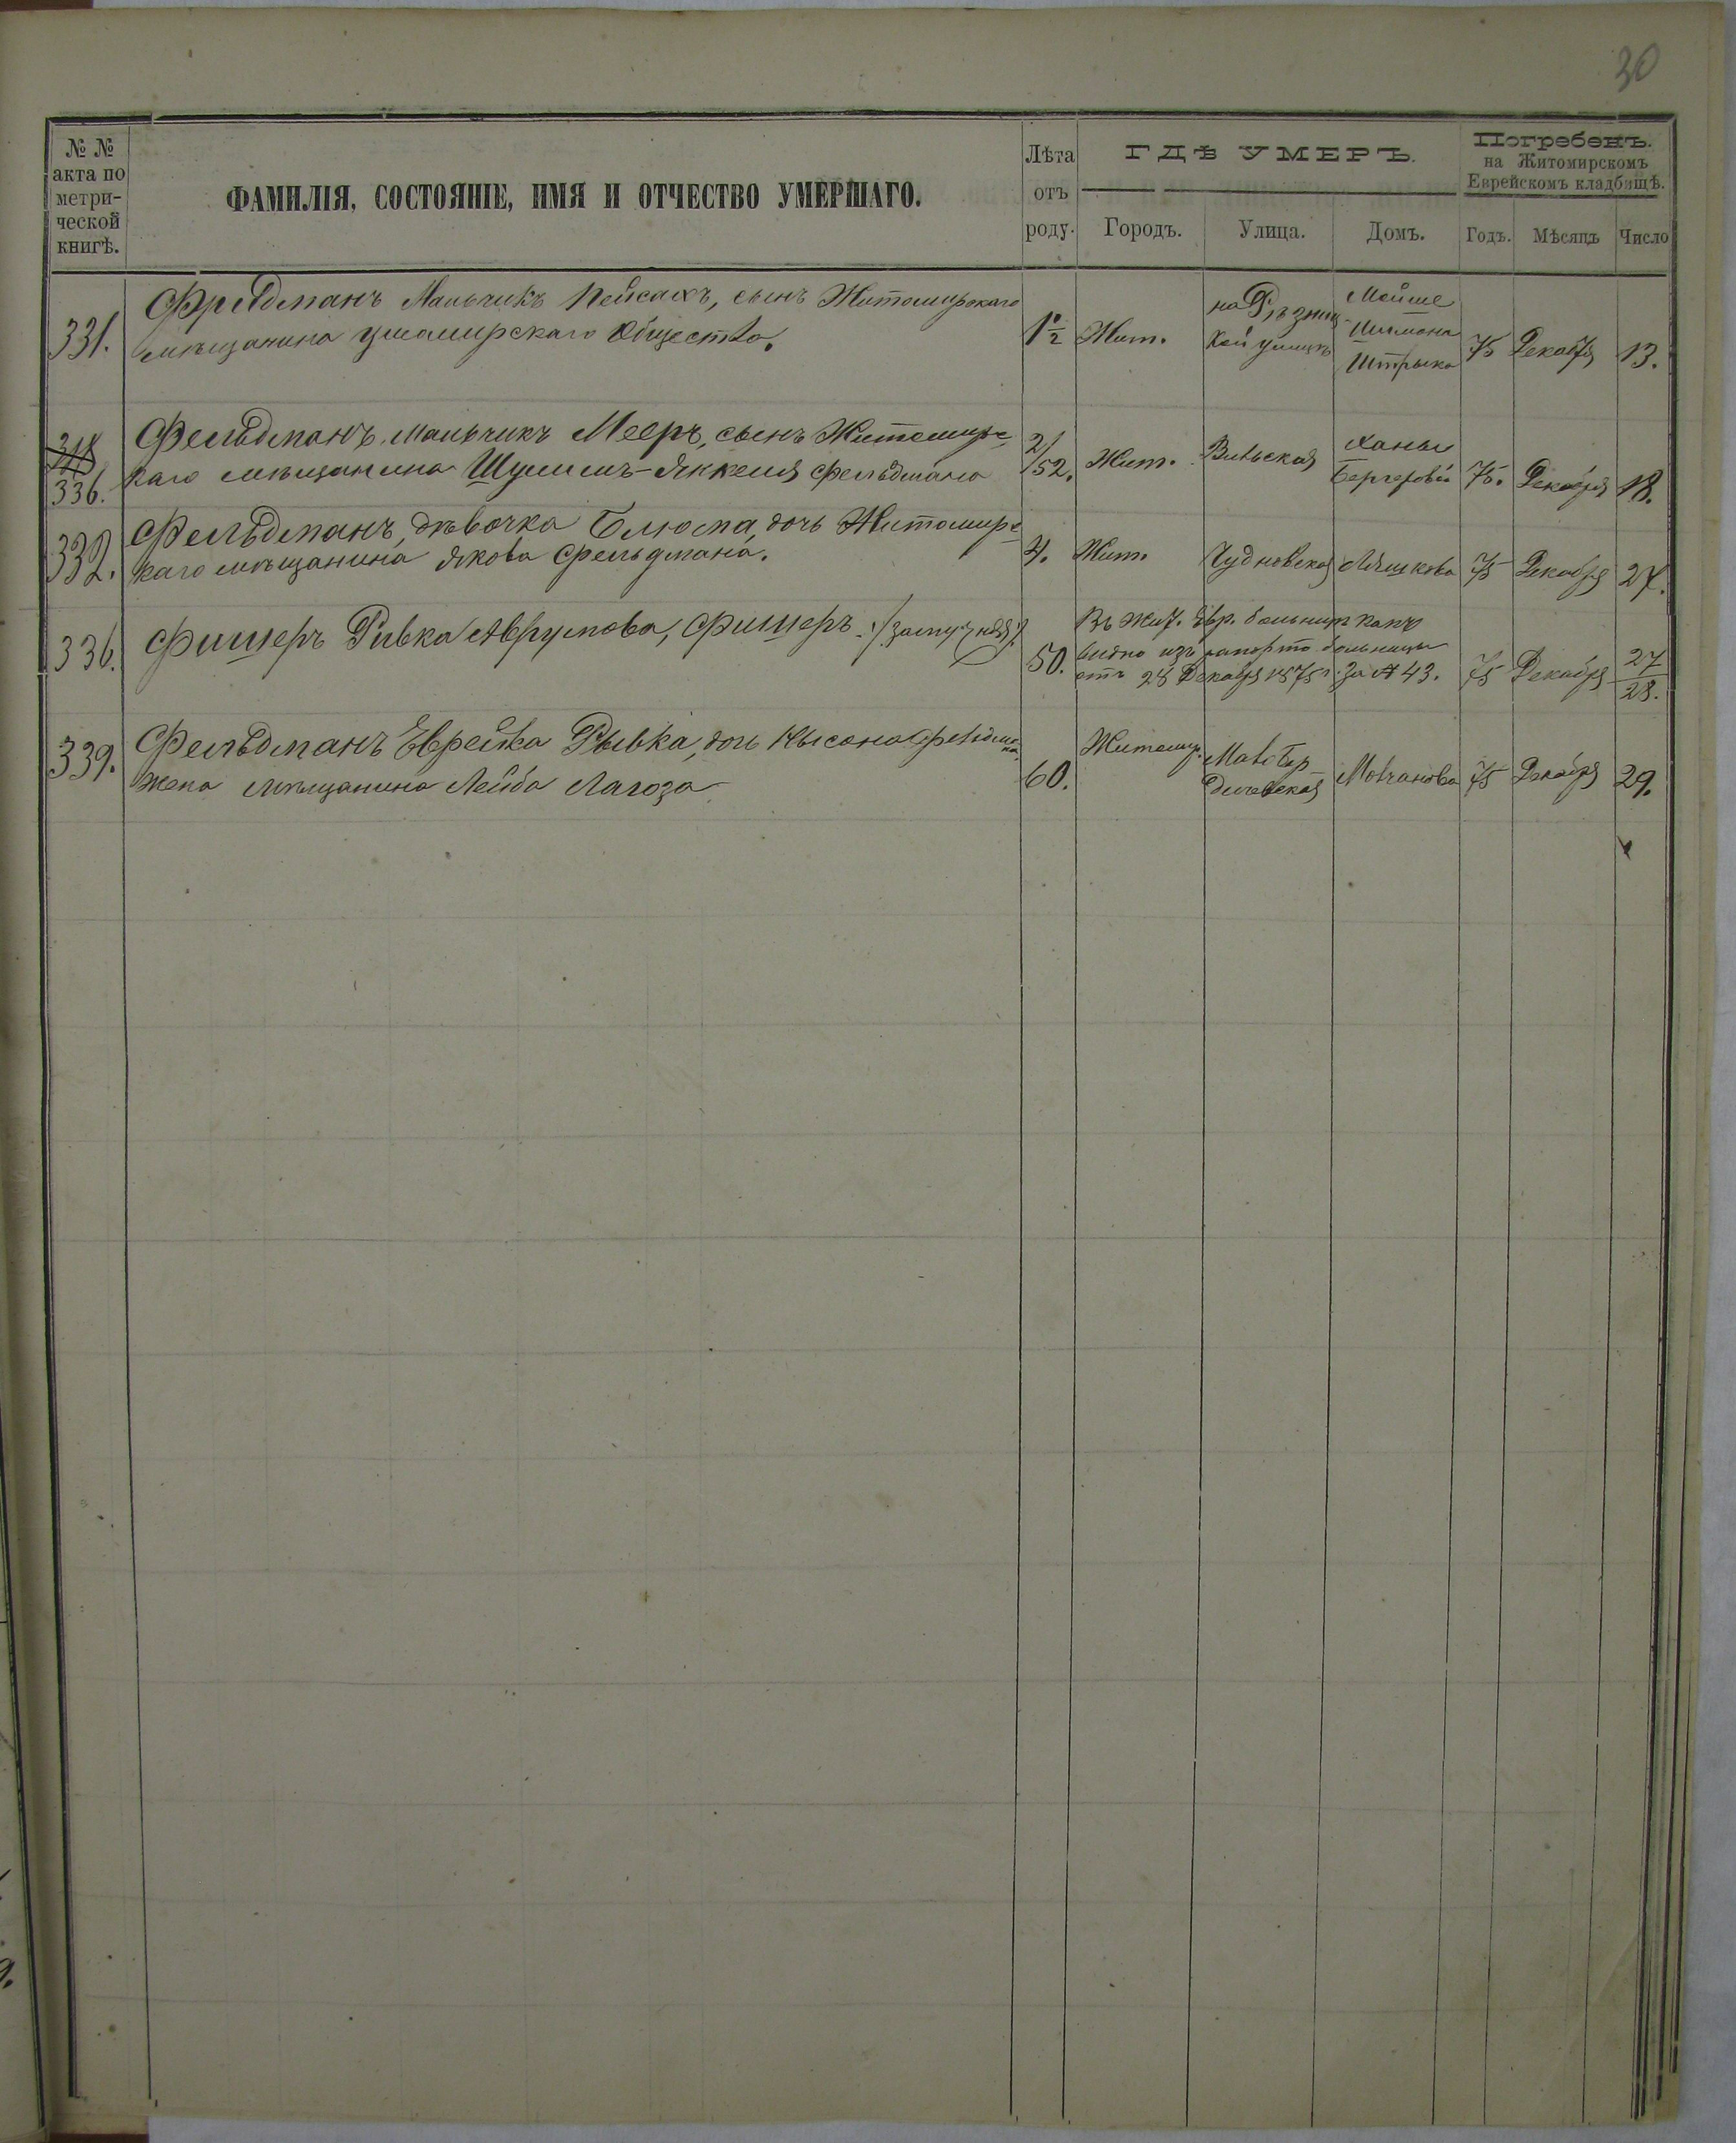 30
№ № акта по метрической книгѣ.
ФАМИЛІЯ, СОСТОЯНІЕ, ИМЯ И ОТЧЕСТВО УМЕРШАГО.
Лѣта отъ роду.
ГДѢ УМЕРЪ.
Городъ. Улица. Домъ.
Погребенъ.
на Житомирскомъ
Еврейскомъ кладбищѣ.
Годъ. Мѣсяцъ Число
331.
Фридманъ Мальчикъ Пейсахъ, сынъ Житомирскаго
мѣщанина ушомирскаго Общества.
1 1/2
Жит.
на Рѣзниц-
кой улицѣ
Мойше
Шимона
Штрыка
75 Декабря 13.
318
336.
Фельдманъ, Мальчикъ Мееръ, сынъ Житомирс-
каго мѣщанина Шулимъ-Янкеля Фельдмана
2/52.
Жит. Вильская
Ханы
Бергеровой
75. Декабря 18.
332.
Фельдманъ, дѣвочка Блюма, дочь Житомирс-
каго мѣщанина Якова Фельдмана.
4. Жит. Чудновская Ляшкова 75 Декабря 27.
336.
Фишеръ Ривка Аврумова, Фишеръ
50.
Въ Жит. Евр. больницѣ какъ
видно изъ рапорта больницы
отъ 28 Декабря 1875 г. за № 43.
75 Декабря 27/28.
339.
Фельдманъ Еврейка Рывка, дочь Нысона Фельдма-
на.
жена мѣщанина Лейба Лагоза
60.
Житомир.
Мало Бер-
дичевская
Мовчанова 75 Декабря 29.